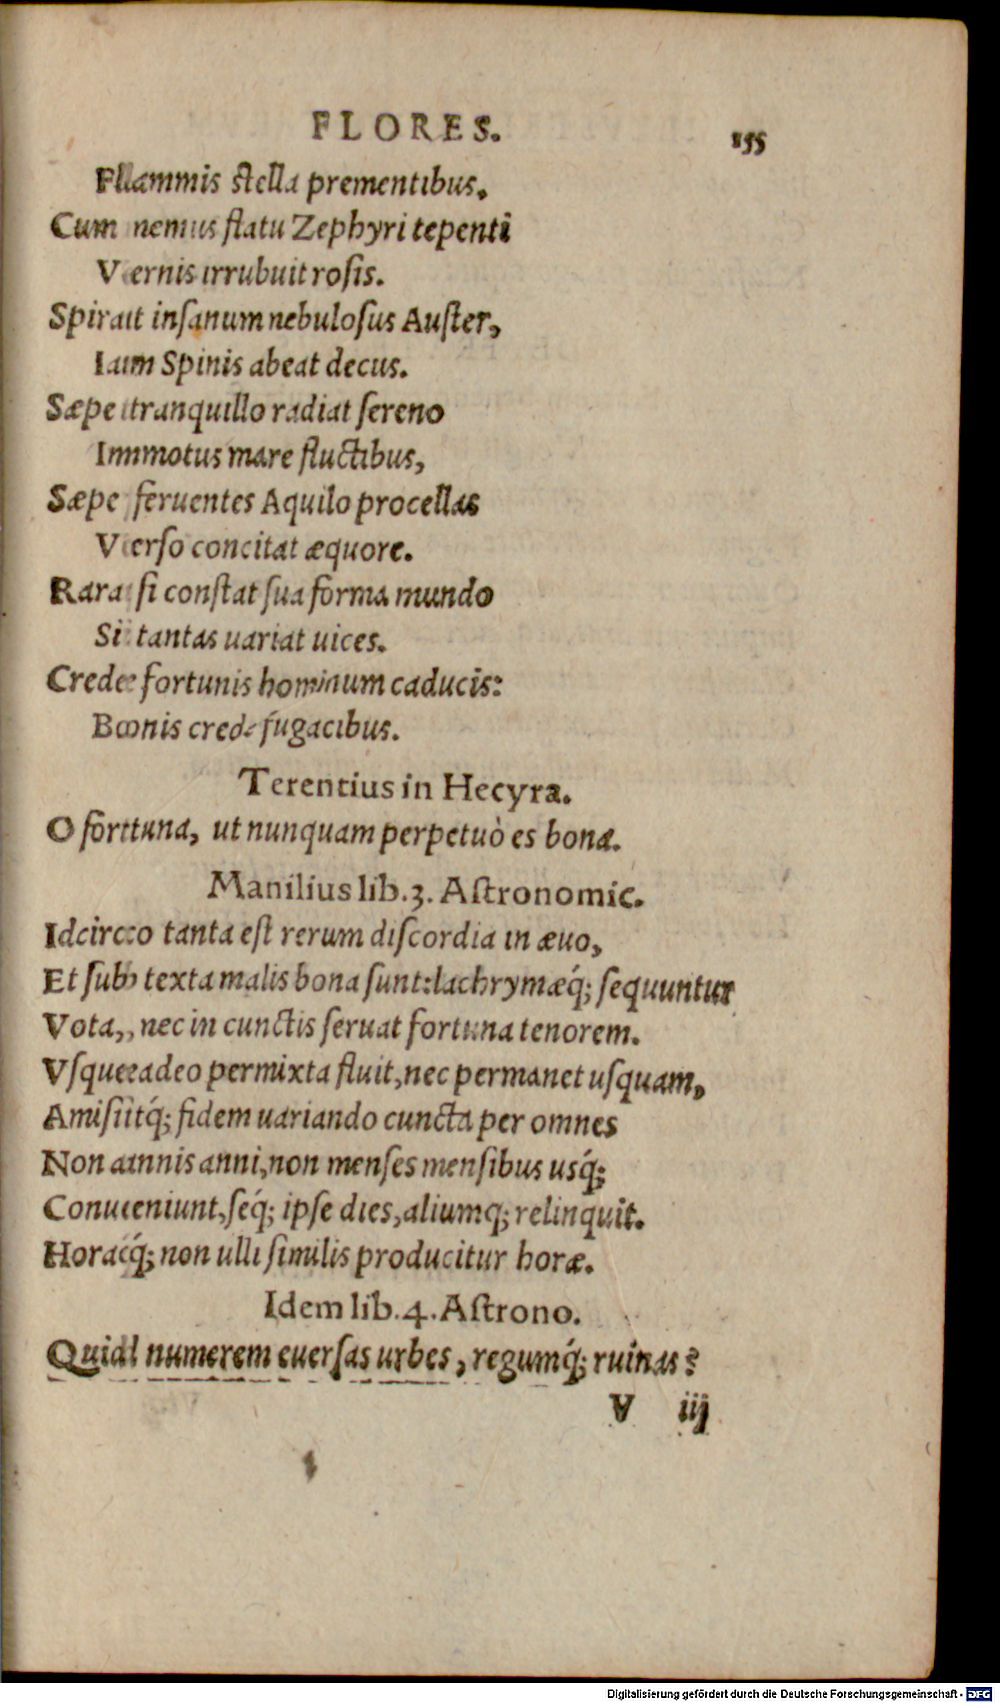 FLORES. 155
Flammis stella prementibus,
Cum nemus flatu Zephyri tepenti
Vernis irrubuit rosis.
Spirat insanum nebulosus Auster,
Iam Spinis abeat decus.
Sæpe tranquillo radiat sereno
Immotus mare fluctibus,
Sæpe feruentes Aquilo procellas
Verso concitat æquore.
Rara si constat sua forma mundo
Si tantas uariat uices.
Crede fortunis hominum caducis:
Bonis crede fugacibus.
Terentius in Hecyra.
O fortuna, ut nunquam perpetuò es bona.
Manilius lib.3. Astronomic.
Idcirco tanta est rerum discordia in æuo,
Et sub texta malis bona sunt:lachrymæq́; sequuntur
Vota, nec in cunctis seruat fortuna tenorem.
Vsque adeo permixta fluit, nec permanet usquam,
Amisitq́; fidem uariando cuncta per omnes
Non annis anni, non menses mensibus usq́;
Conueniunt, seq́; ipse dies, aliumq; relinquit.
Horaq́; non ulli similis producitur horæ.
Idem lib.4. Astrono.
Quid numerem euersas urbes, regumq́; ruinas?
V iij
Digitalisierung gefördert durch die Deutsche Forschungsgemeinschaft - DFG